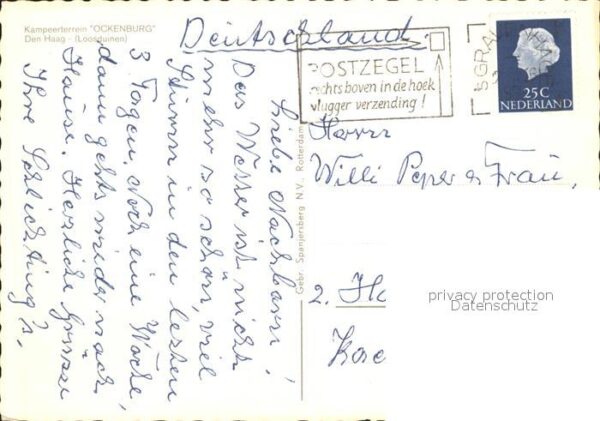 Kampeerterrein "OCKENBURG"
Den Haag - (Loosduinen)
Deutschland.
POSTZEGEL
rechts boven in de hoek
vlugger verzending!
'S GRAVENHAGE
25C
NEDERLAND
Liebe Nachbarn!
Das Wetter ist nicht
mehr so schön, viel
Sturm in den letzten
3 Tagen. Noch eine Woche,
dann gehts wieder nach
Hause. Herzliche Grüsse
Ihre Schlichting's.
Gebr. Spanjersberg N.V., Rotterdam
Herrn
Willi Peper u Frau,
2. Ha
privacy protection
Datenschutz